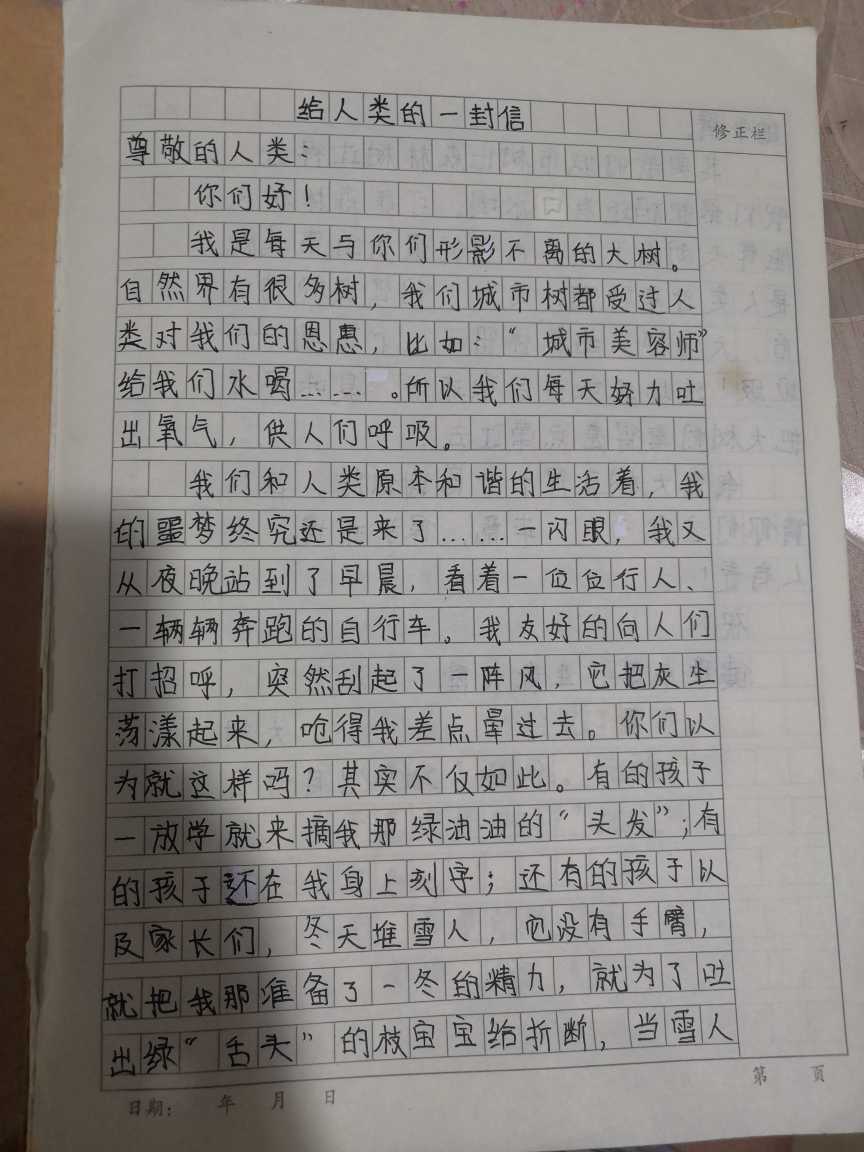 给人类的一封信
修正栏
尊敬的人类：
你们好！
我是每天与你们形影不离的大树。
自然界有很多树，我们城市树都受过人
类对我们的恩惠，比如：“城市美容师”
给我们水喝……。所以我们每天努力吐
出氧气，供人们呼吸。
我们和人类原本和谐的生活着，我
的噩梦终究还是来了……一闪眼，我又
从夜晚站到了早晨，看着一位位行人、
一辆辆奔跑的自行车。我友好的向人们
打招呼，突然刮起了一阵风，它把灰尘
荡漾起来，呛得我差点晕过去。你们以
为就这样吗？其实不仅如此。有的孩子
一放学就来摘我那绿油油的“头发”；有
的孩子还在我身上刻字；还有的孩子以
及家长们，冬天堆雪人，它没有手臂，
就把我那准备了一冬的精力，就为了吐
出绿“舌头”的枝宝宝给折断，当雪人
第 页
日期： 年 月 日